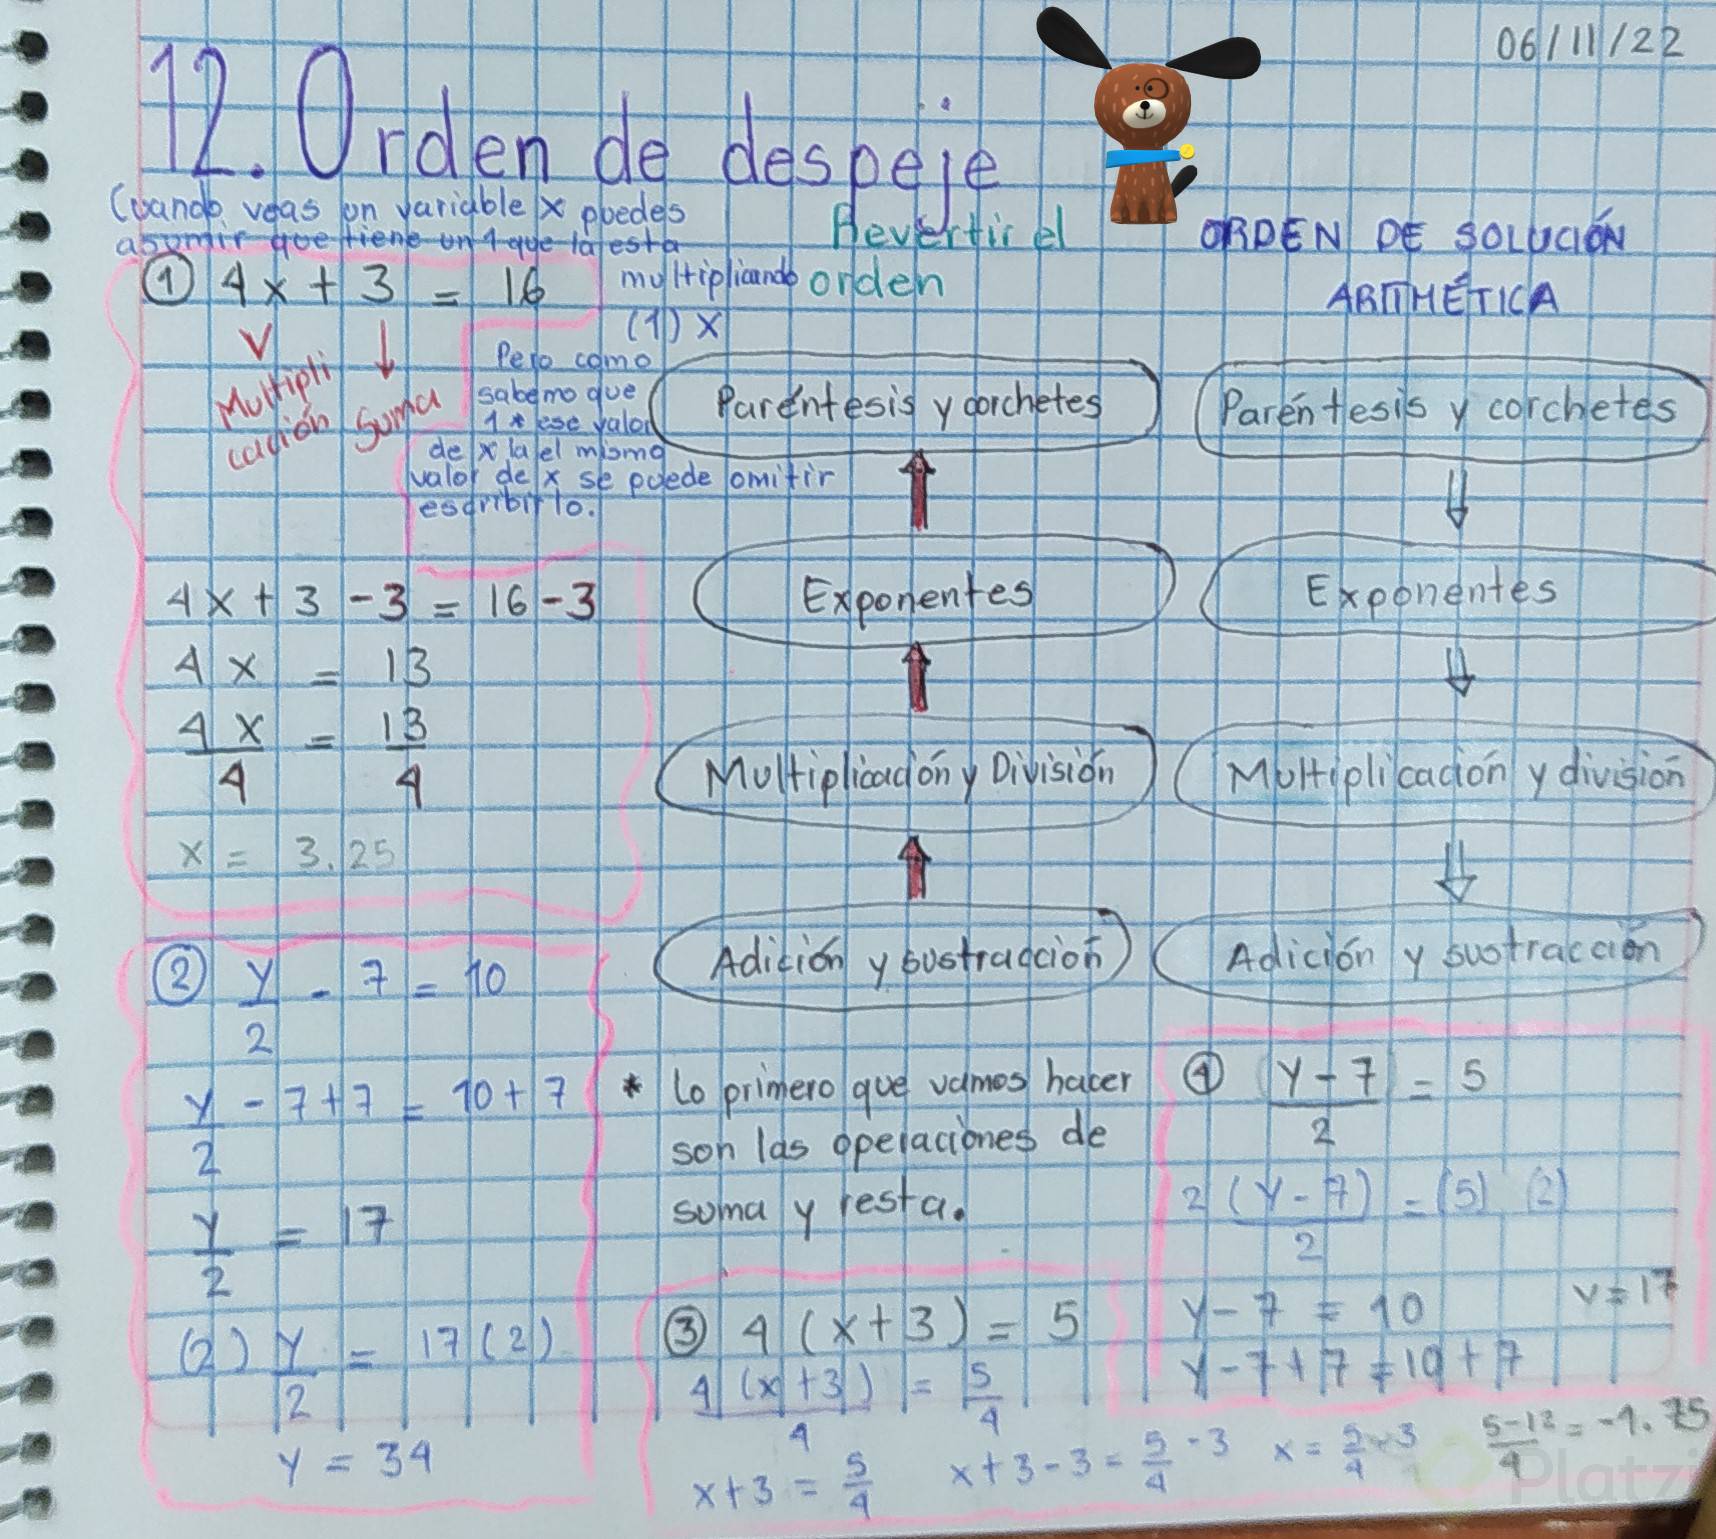 06/11/22
12. Orden de despeje
Cuando veas un variable x puedes
asumir que tiene un 1 que la esta
multiplicando
(1) x
Pero como
sabemo que
1 * ese valor
de x la el mismo
valor de x se puede omitir
escribirlo.
① 4x + 3 = 16
Multipli
cación
Suma
4x + 3 - 3 = 16 - 3
4x = 13
4x/4 = 13/4
x = 3.25
Revertir el
orden
Paréntesis y corchetes
Exponentes
Multiplicación y División
Adición y sustracción
ORDEN DE SOLUCIÓN
ARITMÉTICA
Paréntesis y corchetes
Exponentes
Multiplicación y división
Adición y sustracción
② y/2 - 7 = 10
y/2 - 7 + 7 = 10 + 7
y/2 = 17
(2) y/2 = 17 (2)
y = 34
* Lo primero que vamos hacer
son las operaciones de
suma y resta.
③ 4 (x + 3) = 5
4 (x + 3)/4 = 5/4
x + 3 = 5/4
x + 3 - 3 = 5/4 - 3
x = 5/4 - 3
5-12/4 = -1.75
④ y - 7/2 = 5
2 (y - 7)/2 = (5) (2)
y - 7 = 10
y - 7 + 7 = 10 + 7
y = 17
Platzi